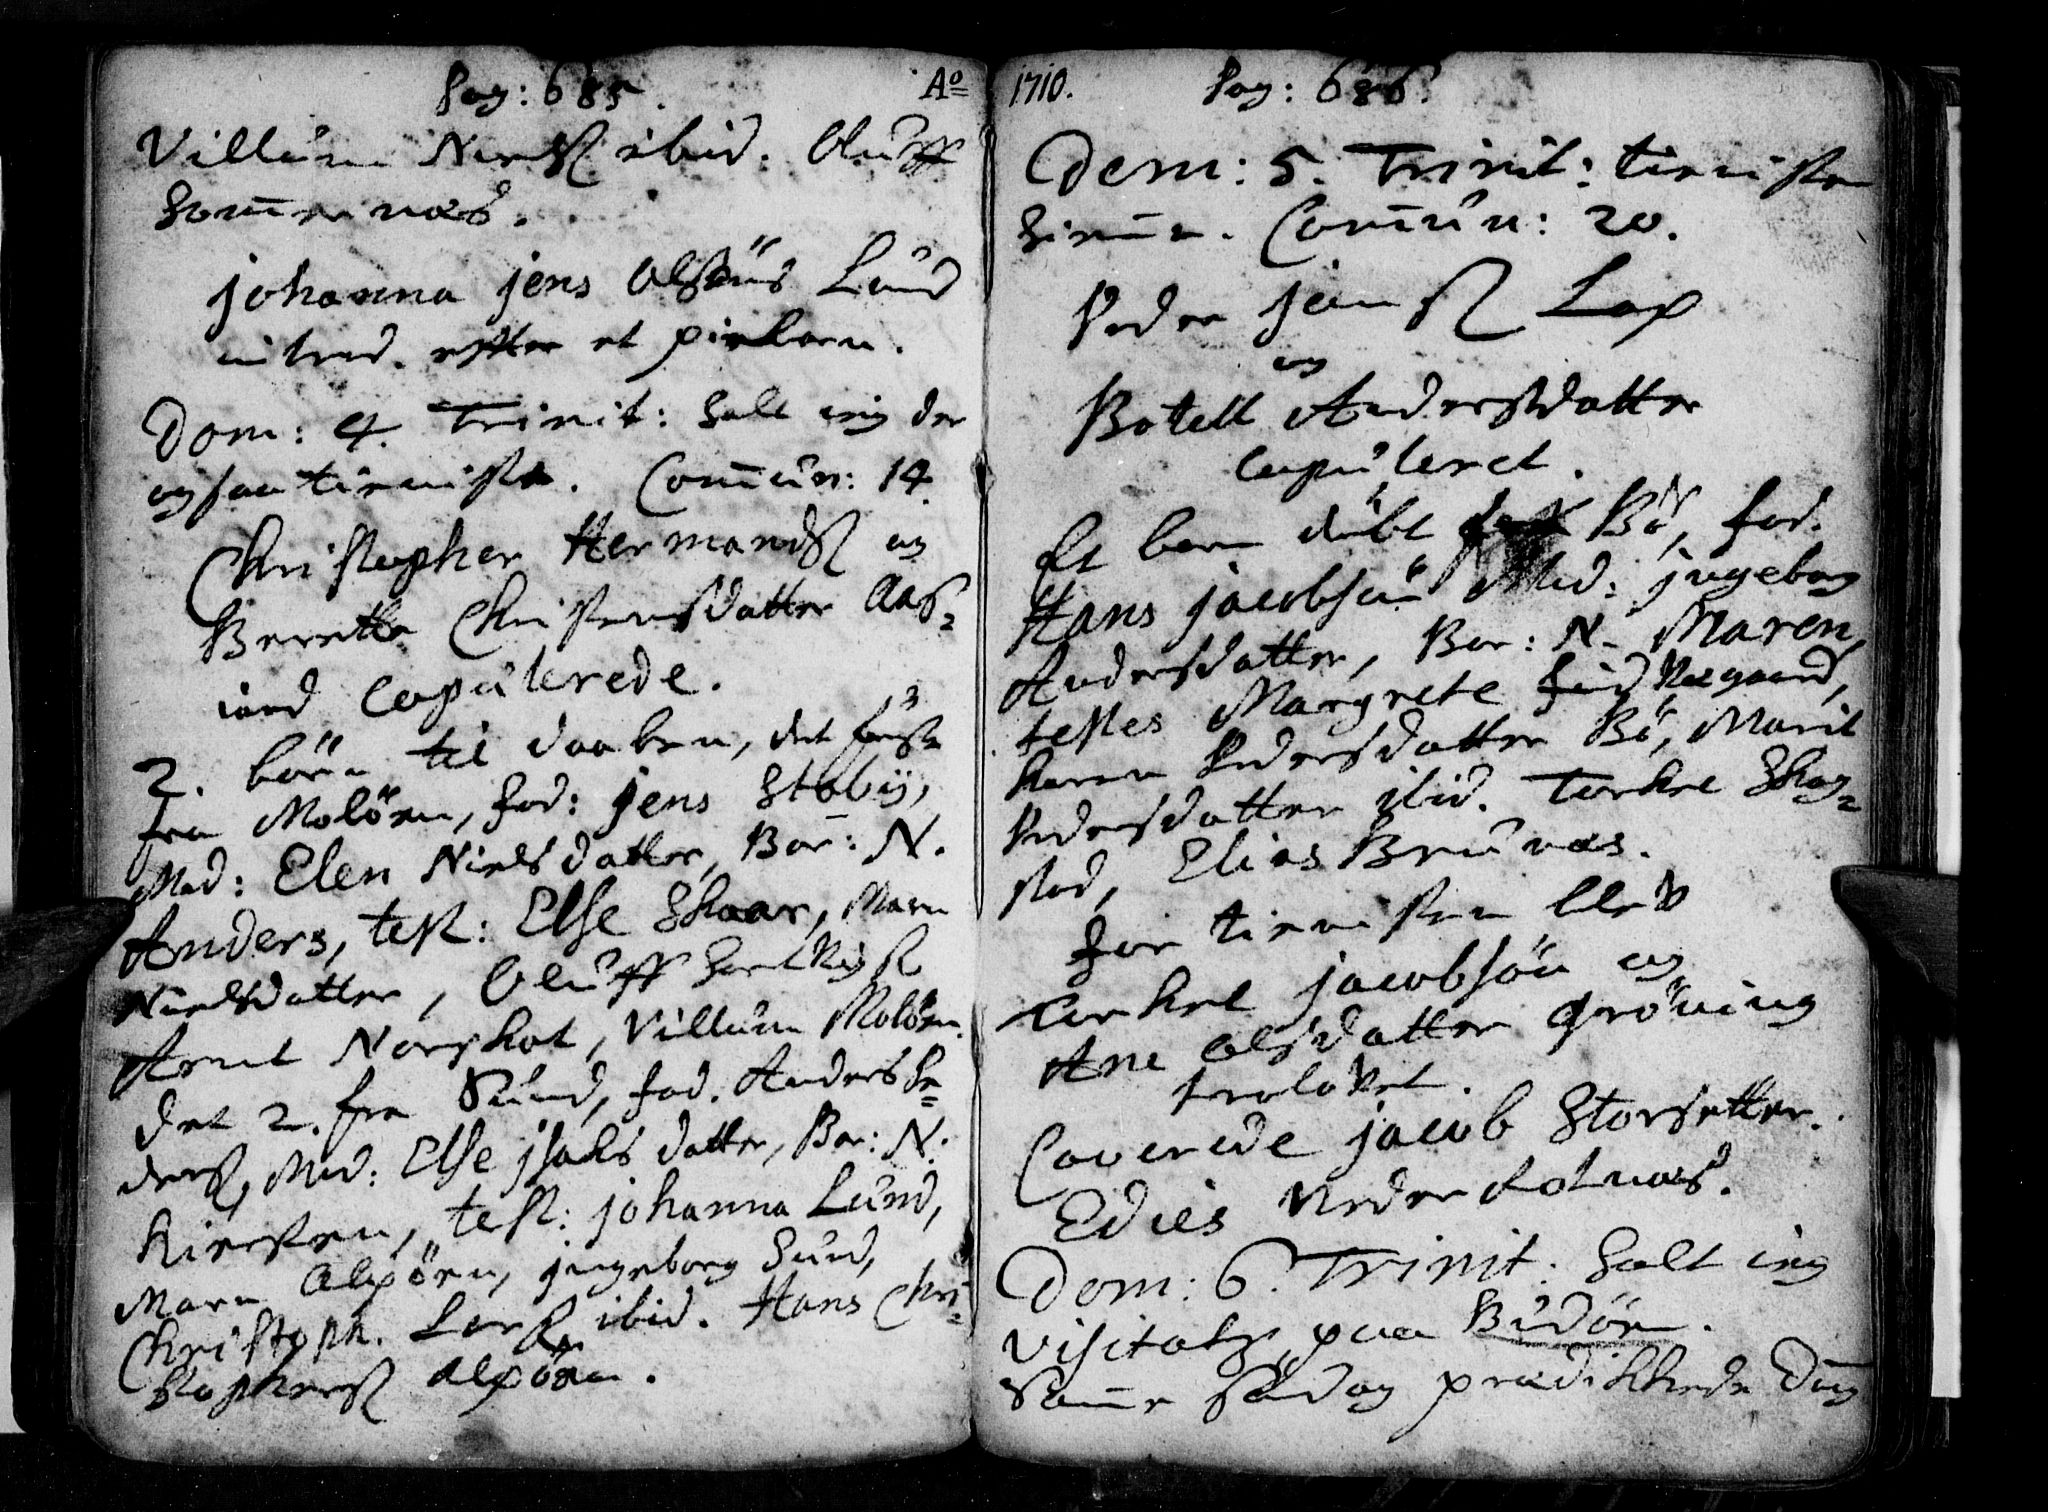 Pag: 685. Aº
Villum Nielsß ibid. Oluff
Hommenæs.
Johanna Jens Olsöns Lund
introd. efter et pigebarn.
Dom: 4. Trinit: Halt ieg der
ogsaa tieniste. Commun: 14.
Christopher Hermandß og
Berette Christensdatter Aas-
iord Copulerede.
2. börn til daaben, det förste
fra Molöen, fad: Jens Stobÿ,
Mod: Elen Nielsdatter, Bar: N.
Anders, test: Else Skaar, Maren
Nielsdatter, Oluff
Arnt Norskot, Villum Molöen.
Det 2. fra Sund, fad. Anders
Mod: Else Jsaksdatter, Bar: N.
Kirsten, test: Johanna Lund,
Maren Alpöen, Jngeborg Sund,
Christoph. Larsß ibid. Hans Chri-
stophersß Alpöen.
1710. Pag: 686.
Dom: 5. Trinit: tienisten
hiemme. Commun: 20.
Peder Jensß Lap
og
Botell Andersdatter
Copuleret.
Et barn döbt Bö, fad.
Hans Jacobsön Mod: Jngeborg
Andersdatter, Bar: N. Maren,
testes Margrete Næsgaard,
Karen Pedersdatter Bö, Marit
Pedersdatter ibid. Torkel Skog-
stad, Elias Brunæs.
For tienisten blev
Torkel Jacobsön og
Ane Olsdatter Gröning
trolovet.
Caverede Jacob Storsetter.
Edies Neder Kolnæs.
Dom: 6. Trinit: Halt ieg
Visitatz paa Budöen.
Samme Södag prædikkede